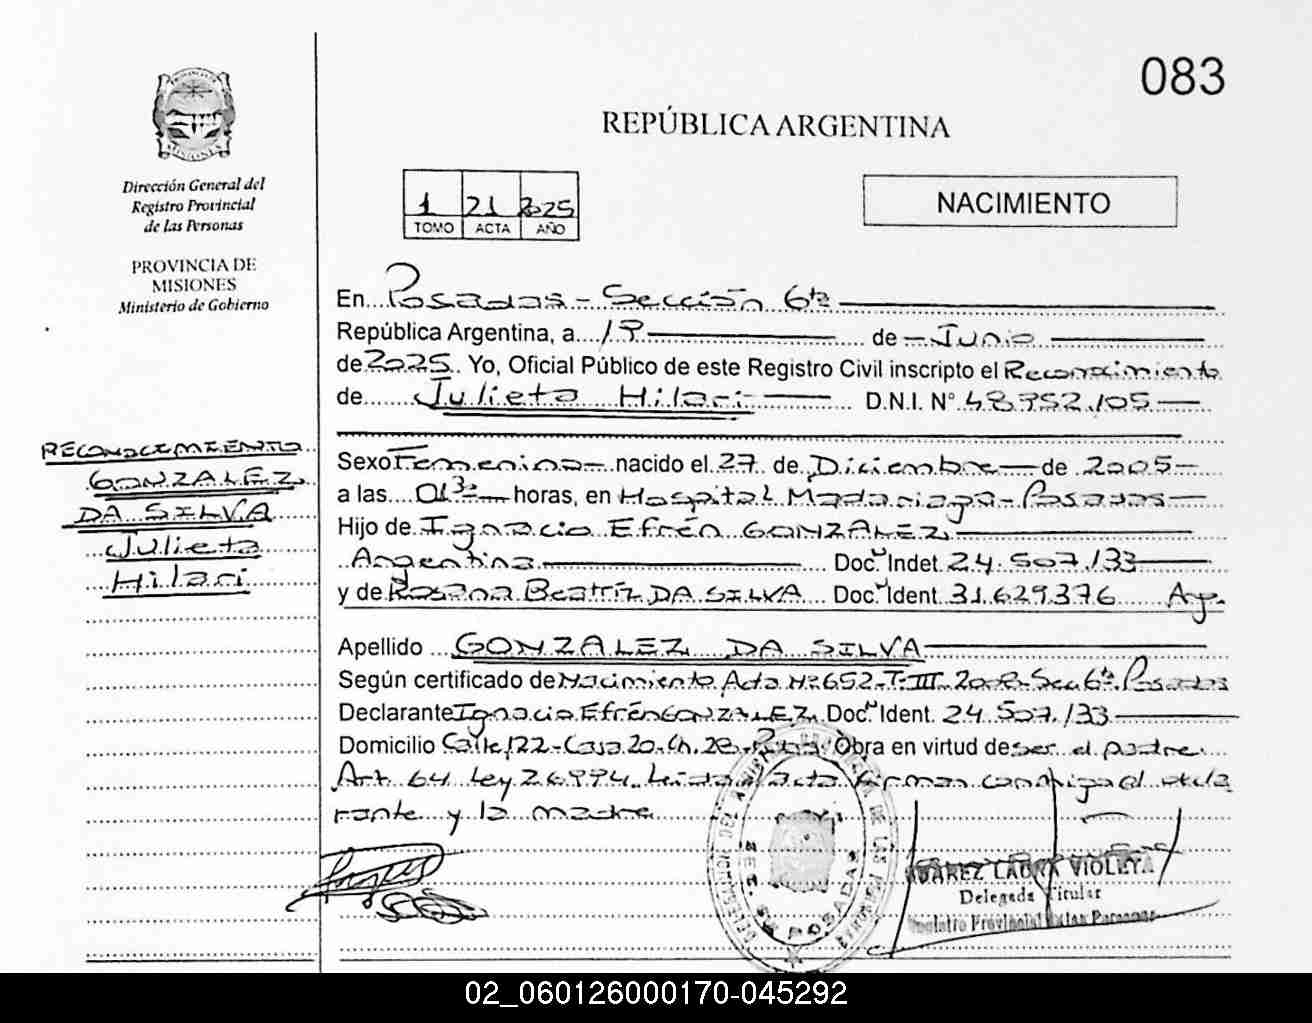 083
REPÚBLICA ARGENTINA
Dirección General del
Registro Provincial
de las Personas
PROVINCIA DE
MISIONES
Ministerio de Gobierno
1 21 2025
TOMO ACTA AÑO
NACIMIENTO
En Posadas - Sección 6ta
República Argentina, a 19 de Junio
de 2025. Yo, Oficial Público de este Registro Civil inscripto el Reconocimiento
de Julieta Hilari D.N.I. N° 48.952.105
RECONOCIMIENTO
GONZALEZ
DA SILVA
Julieta
Hilari
Sexo Femenino nacido el 27 de Diciembre de 2005
a las 01 30 horas, en Hospital Madariaga - Posadas
Hijo de Ignacio Efrén GONZALEZ,
Argentina Doc. Indet. 24.507.133
y de Rosana Beatríz DA SILVA Doc. Ident. 31.629.376 Arg.
Apellido GONZALEZ DA SILVA
Según certificado de Nacimiento Acta N° 652 - T-III 2008 Sec 6ta Posadas
Declarante Ignacio Efrén GONZALEZ. Doc. Ident. 24.507.133
Domicilio Calle 122 - Casa 20 - Ch. 28 - Obra en virtud de ser el padre
Art. 64 Ley 26994. Leida el acta firman conmigo el decla
rante y la madre
POSADAS
SUAREZ LAURA VIOLETA
Delegada Titular
Registro Provincial de las Personas
02_060126000170-045292